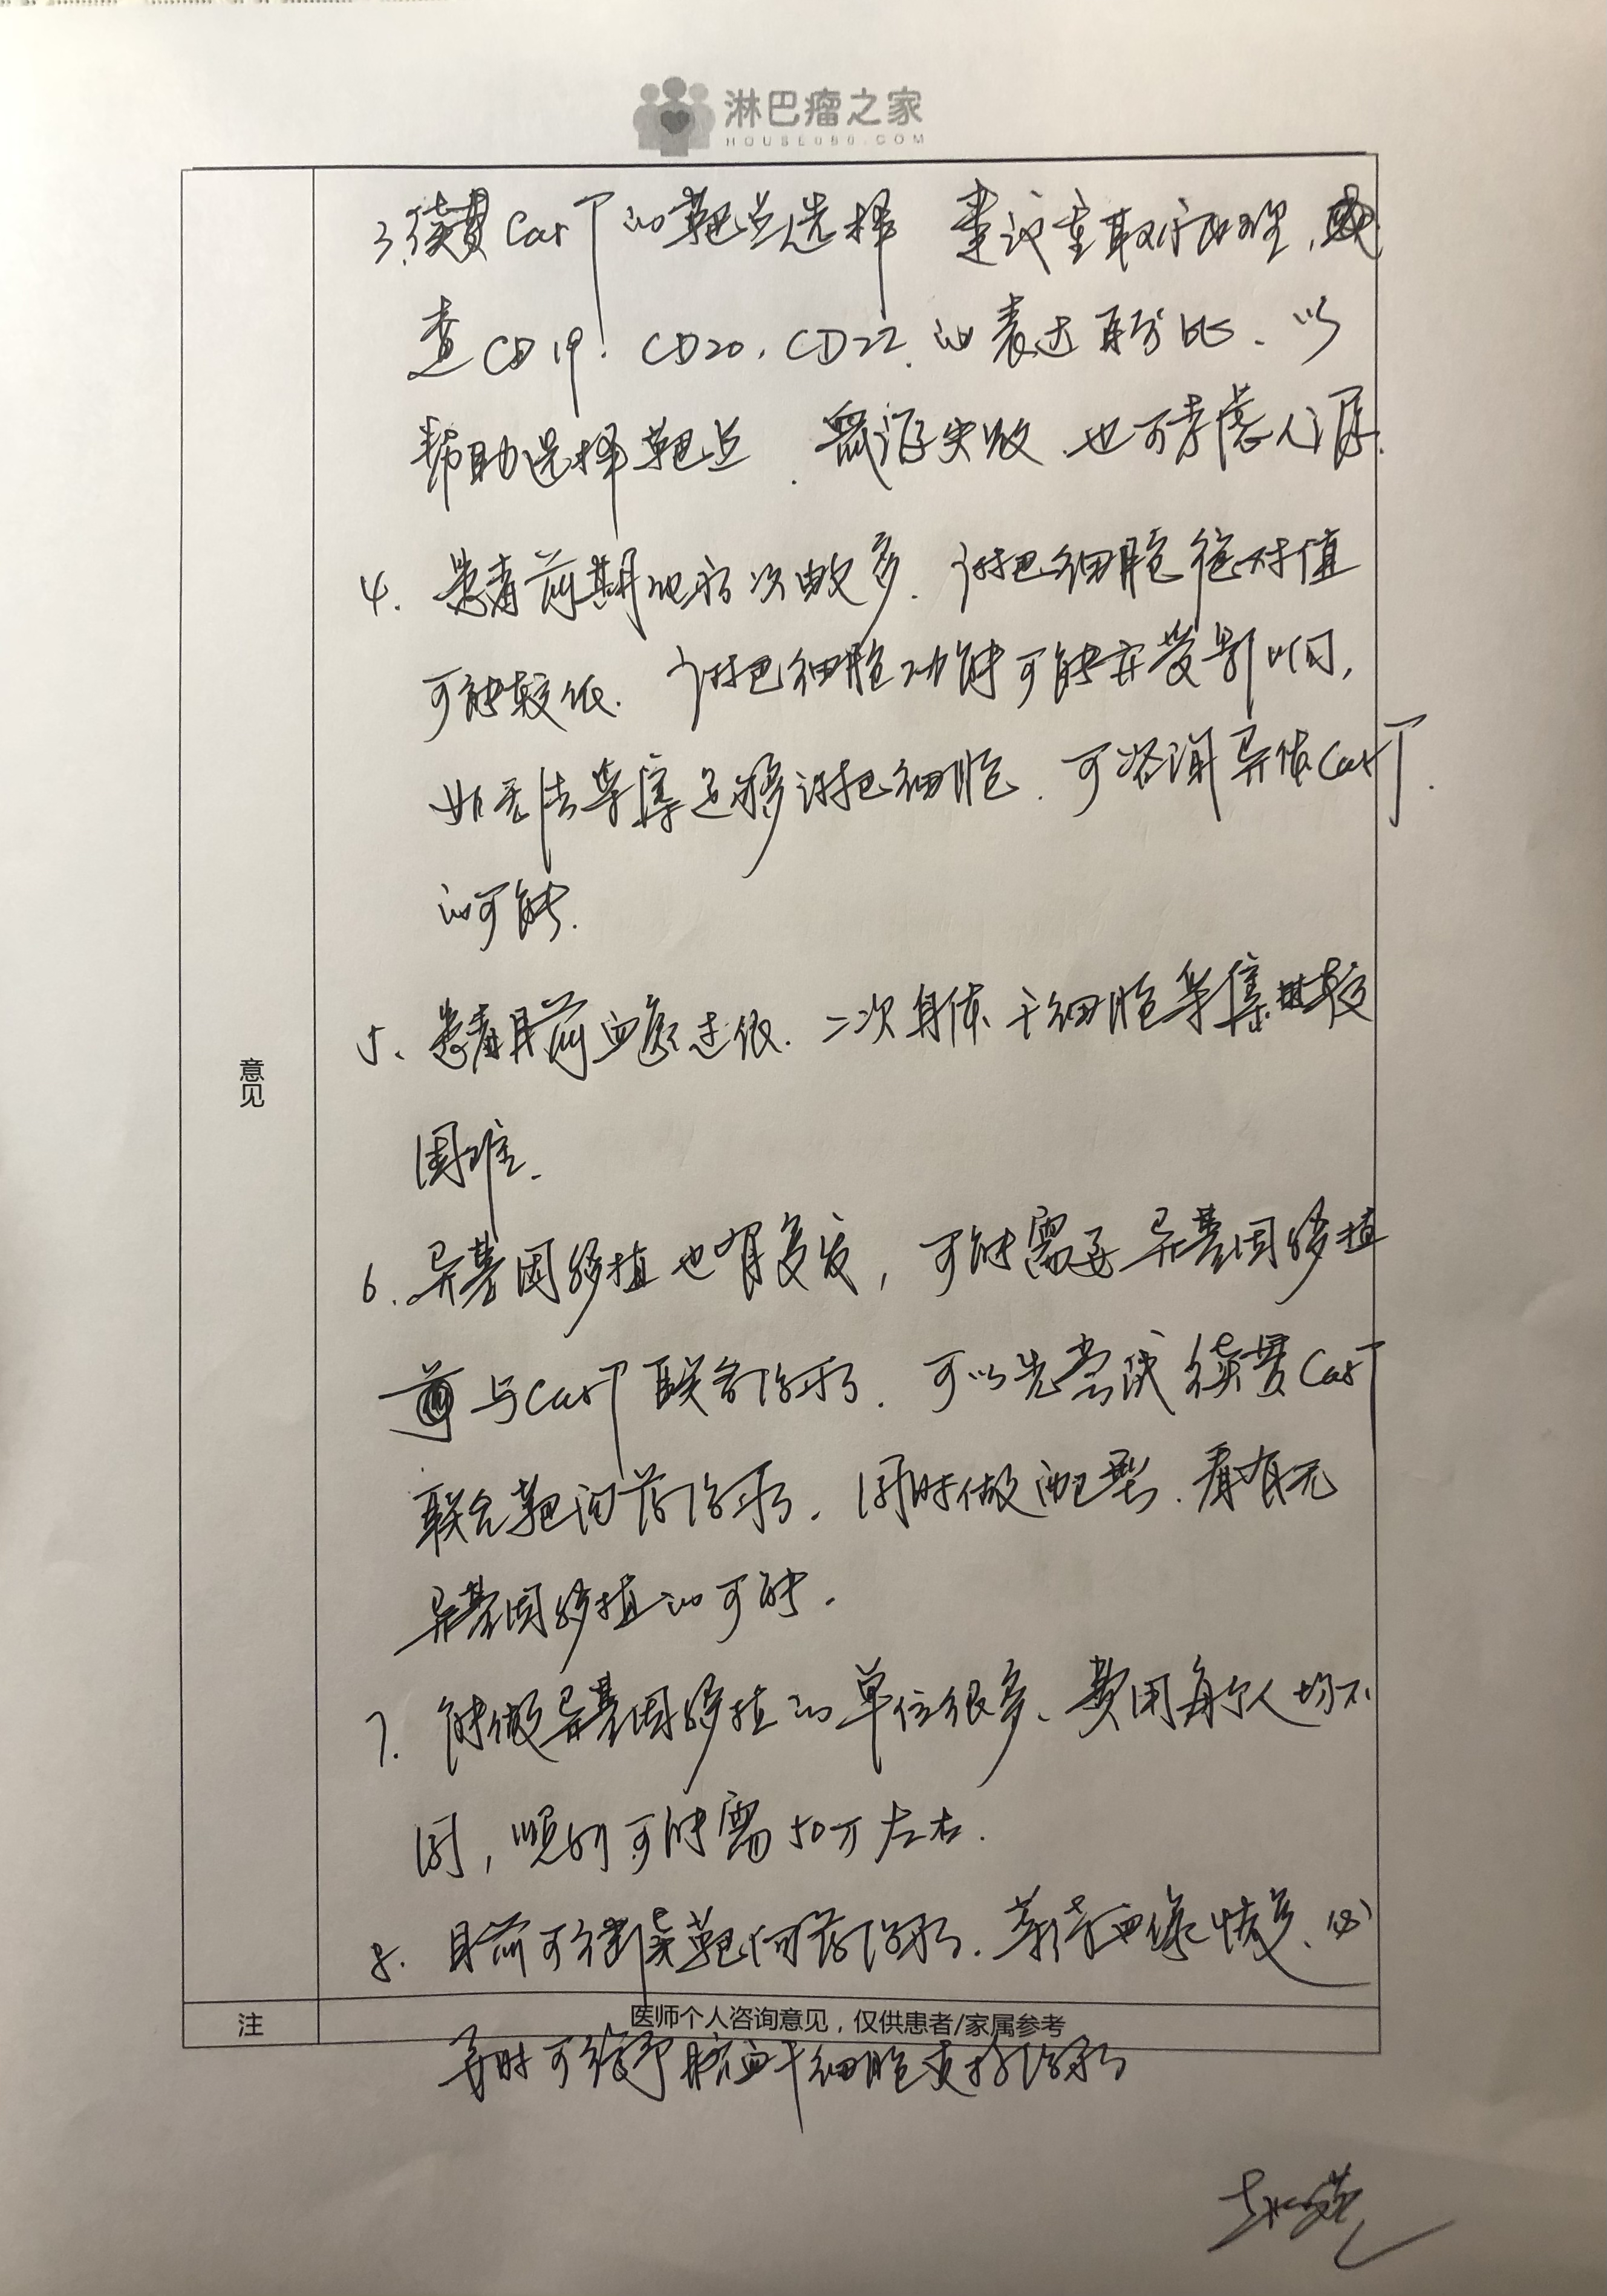 淋巴瘤之家
HOUSE086.COM
3. 续贯CarT的靶点选择 建议重取病理,
查CD19. CD20. CD22. 的表达百分比、以
帮助选择靶点. 鼠源失败.也可考虑人源.
4. 患者前期化疗次数多. 淋巴细胞绝对值
可能较低. 淋巴细胞功能可能亦受影响,
如无法采集足够淋巴细胞. 可咨询异体CarT.
的可能.
5、患者目前血象过低. 二次自体干细胞采集较
困难.
6. 异基因移植也有复发, 可能需要异基因移植
前与CarT联合治疗. 可以先尝试续贯CarT
联合靶向药治疗. 同时做配型. 看有无
异基因移植的可能.
7. 能做异基因移植的单位很多、费用每个人均不
同, 顺利可能需50万左右.
8. 目前可继续靶向药治疗. 等待血象恢复、必
要时可给予脐血干细胞支持治疗
意见
注
医师个人咨询意见，仅供患者/家属参考